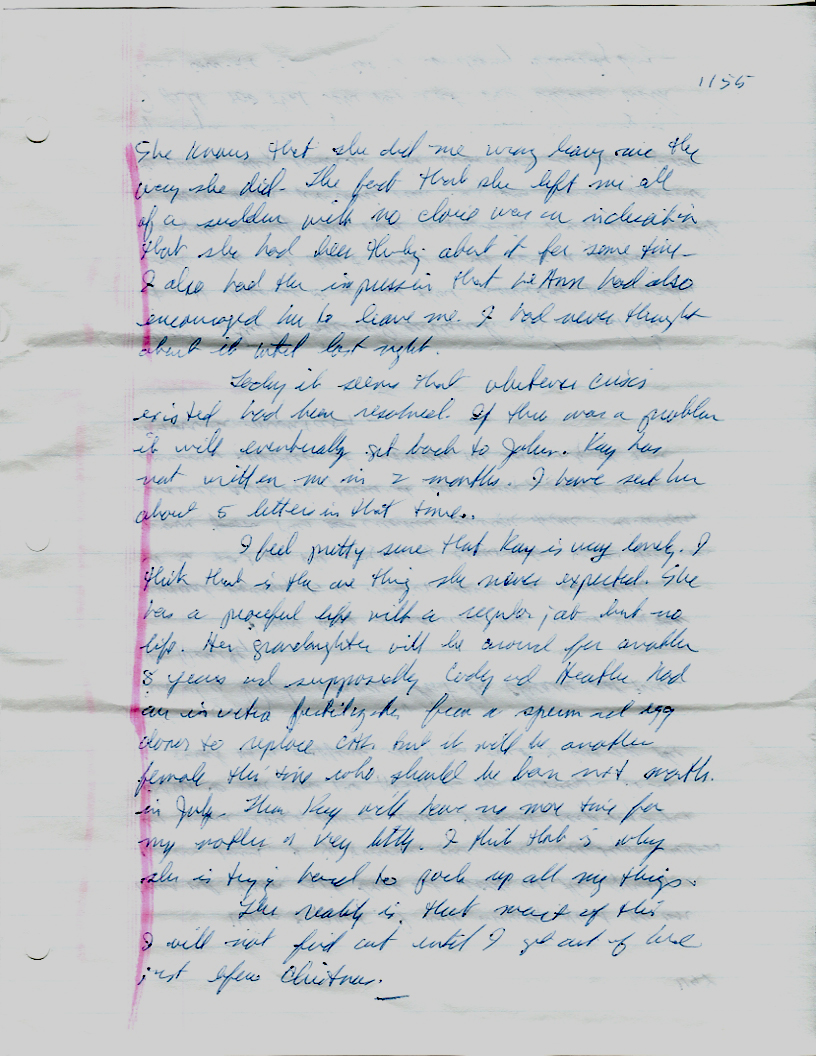 1155
She knows that she did me wrong leaving me the
way she did. The fact that she left me all
of a sudden with no clone was an indication
that she had been thinking about it for some time.
I also had the impression that LeAnn had also
encouraged her to leave me. I had never thought
about it until last night.
Today it seems that whatever crisis
existed had been resolved. If this was a problem
it will eventually get back to John. Kay has
not written me in 2 months. I have sent her
about 5 letters in that time..
I feel pretty sure that Kay is very lonely. I
think that is the one thing she never expected. She
has a peaceful life with a regular job but no
life. Her grandaughter will be around for another
8 years and supposedly Cody and Heather had
an in vetro fertilization from a sperm and egg
donor to replace but it will be another
female this time who should be born next month
in July. Then Kay will have no more time for
my mother or very little. I think that is why
she is trying hard to pack up all my things.
The reality is that most of this
I will not find out until I get out of here
just before Christmas.